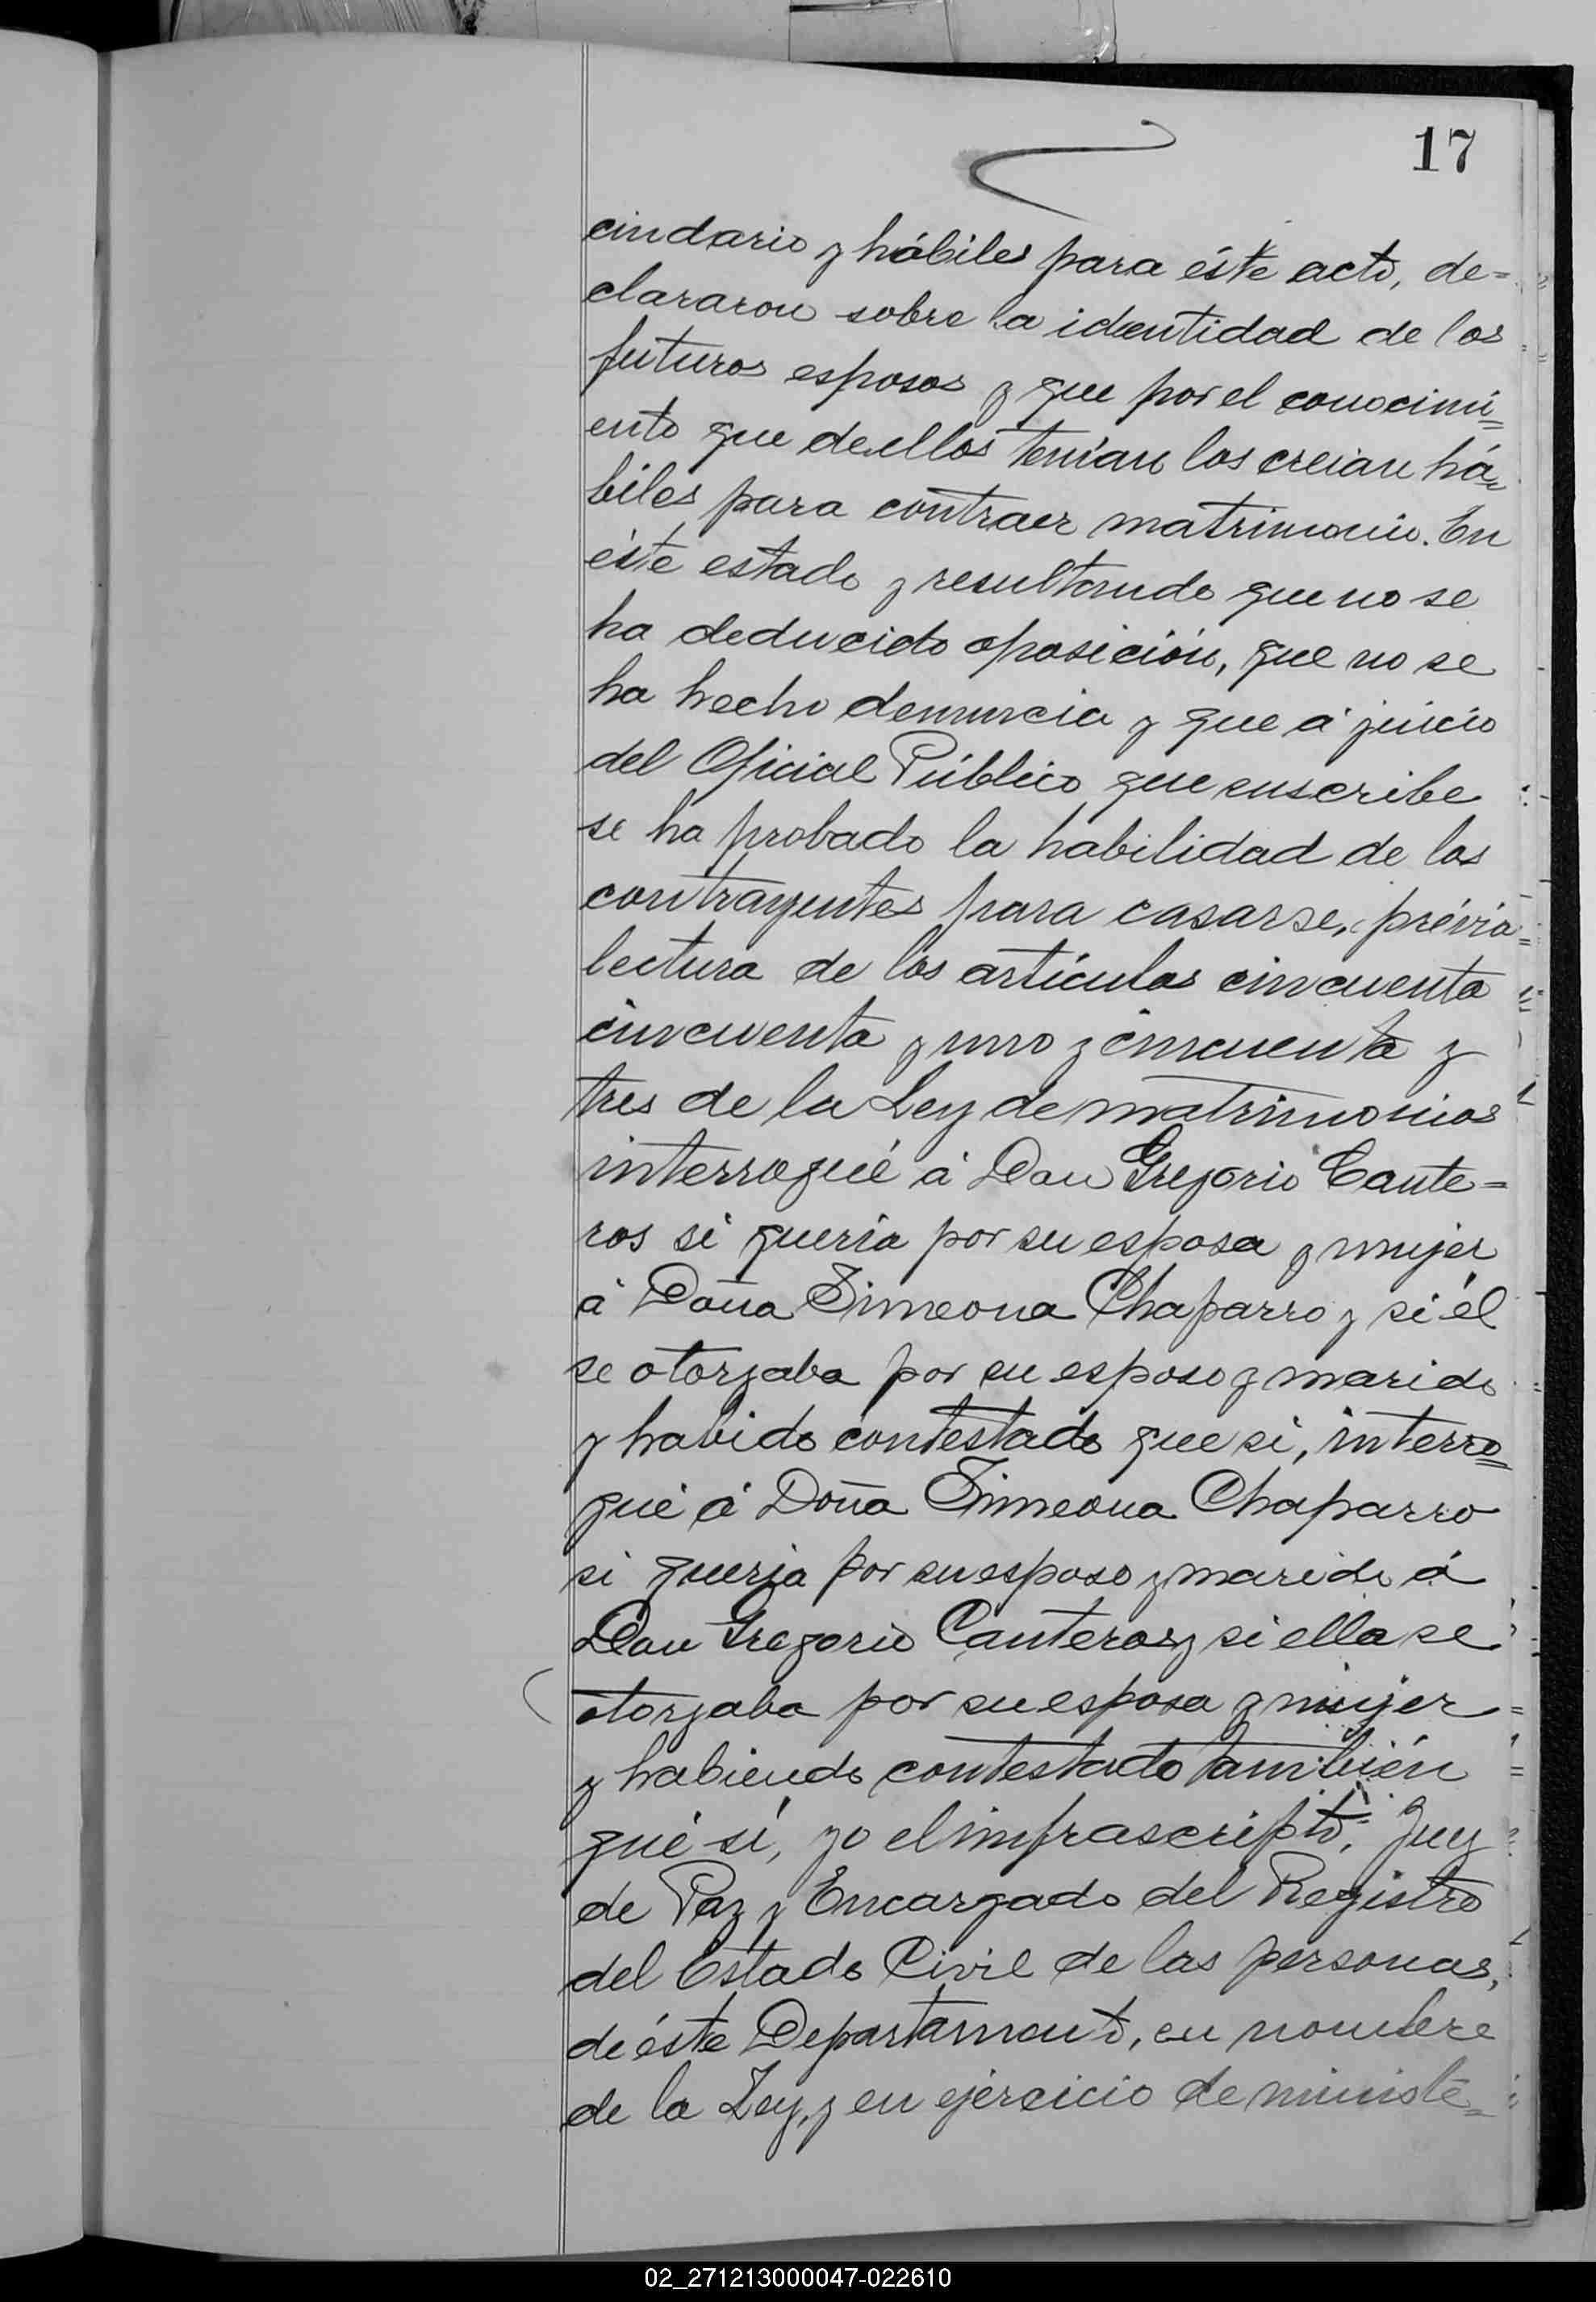 17
cindario y hábiles para éste acto, de=
clararon sobre la identidad de los
futuros esposos y que por el conocimi=
ento que de ellos tenían los creían há=
biles para contraer matrimonio. En
éste estado y resultando que no se
ha deducido oposición, que no se
ha hecho denuncia y que á juicio
del Oficial Público que suscribe
se ha probado la habilidad de los
contrayentes para casarse, prévia
lectura de los artículos cincuenta
cincuenta y uno y cincuenta y
tres de la Ley de matrimonios
interrogué á Don Gregorio Cante=
ros si quería por su esposa y mujer
á Doña Simeona Chaparro y si él
se otorgaba por su esposo y marido
y habido contestado que si, interro=
gué á Doña Simeona Chaparro
si quería por su esposo y marido á
Don Gregorio Canteros y si ella se
otorgaba por su esposa y mujer
y habiendo contestado también
qué sí, yo el infrascripto, Juez
de Paz y Encargado del Registro
del Estado Civil de las personas,
de éste Departamento, en nombre
de la Ley, y en ejercicio de ministe=
02_271213000047-022610